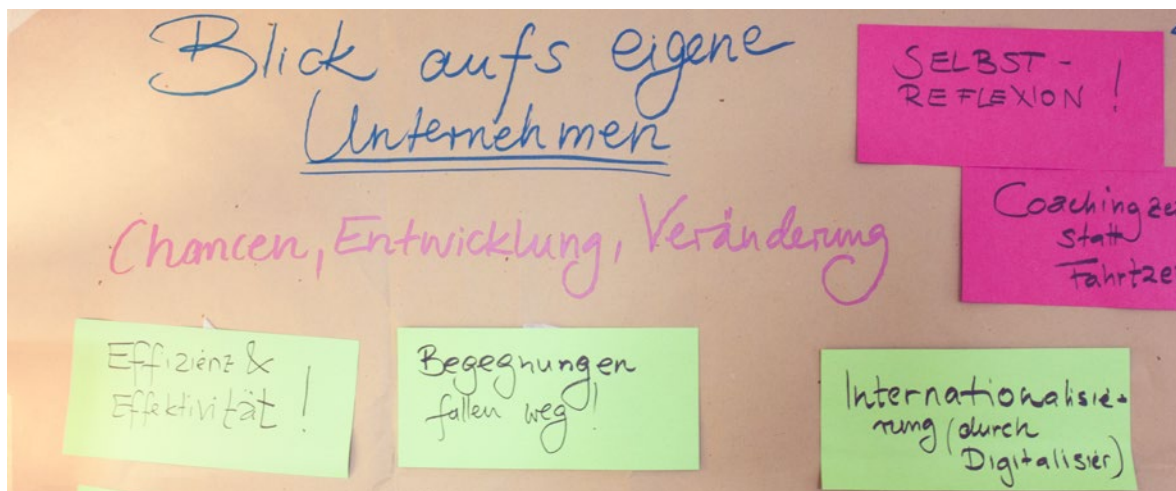 Blick aufs eigene
Unternehmen
Chancen, Entwicklung, Veränderung
SELBST-
REFLEXION !
Coachingzei
statt
Fahrtzei
Effizienz &
Effektivität !
Begegnungen
fallen weg !
Internationalisie-
rung (durch
Digitalisier)